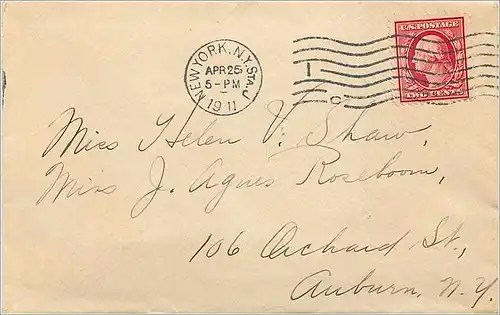 NEW YORK, N.Y. STA. J
APR 25
5-PM
1911
U.S. POSTAGE
TWO CENTS
Miss Helen V. Shaw,
Miss J. Agnes Roseboom,
106 Orchard St.,
Auburn, N.Y.